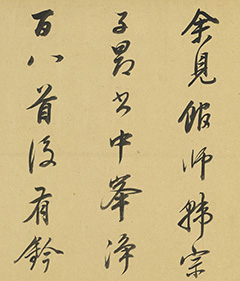 余見館師韓宗
子昂書中峯淨
百八首後有鈐